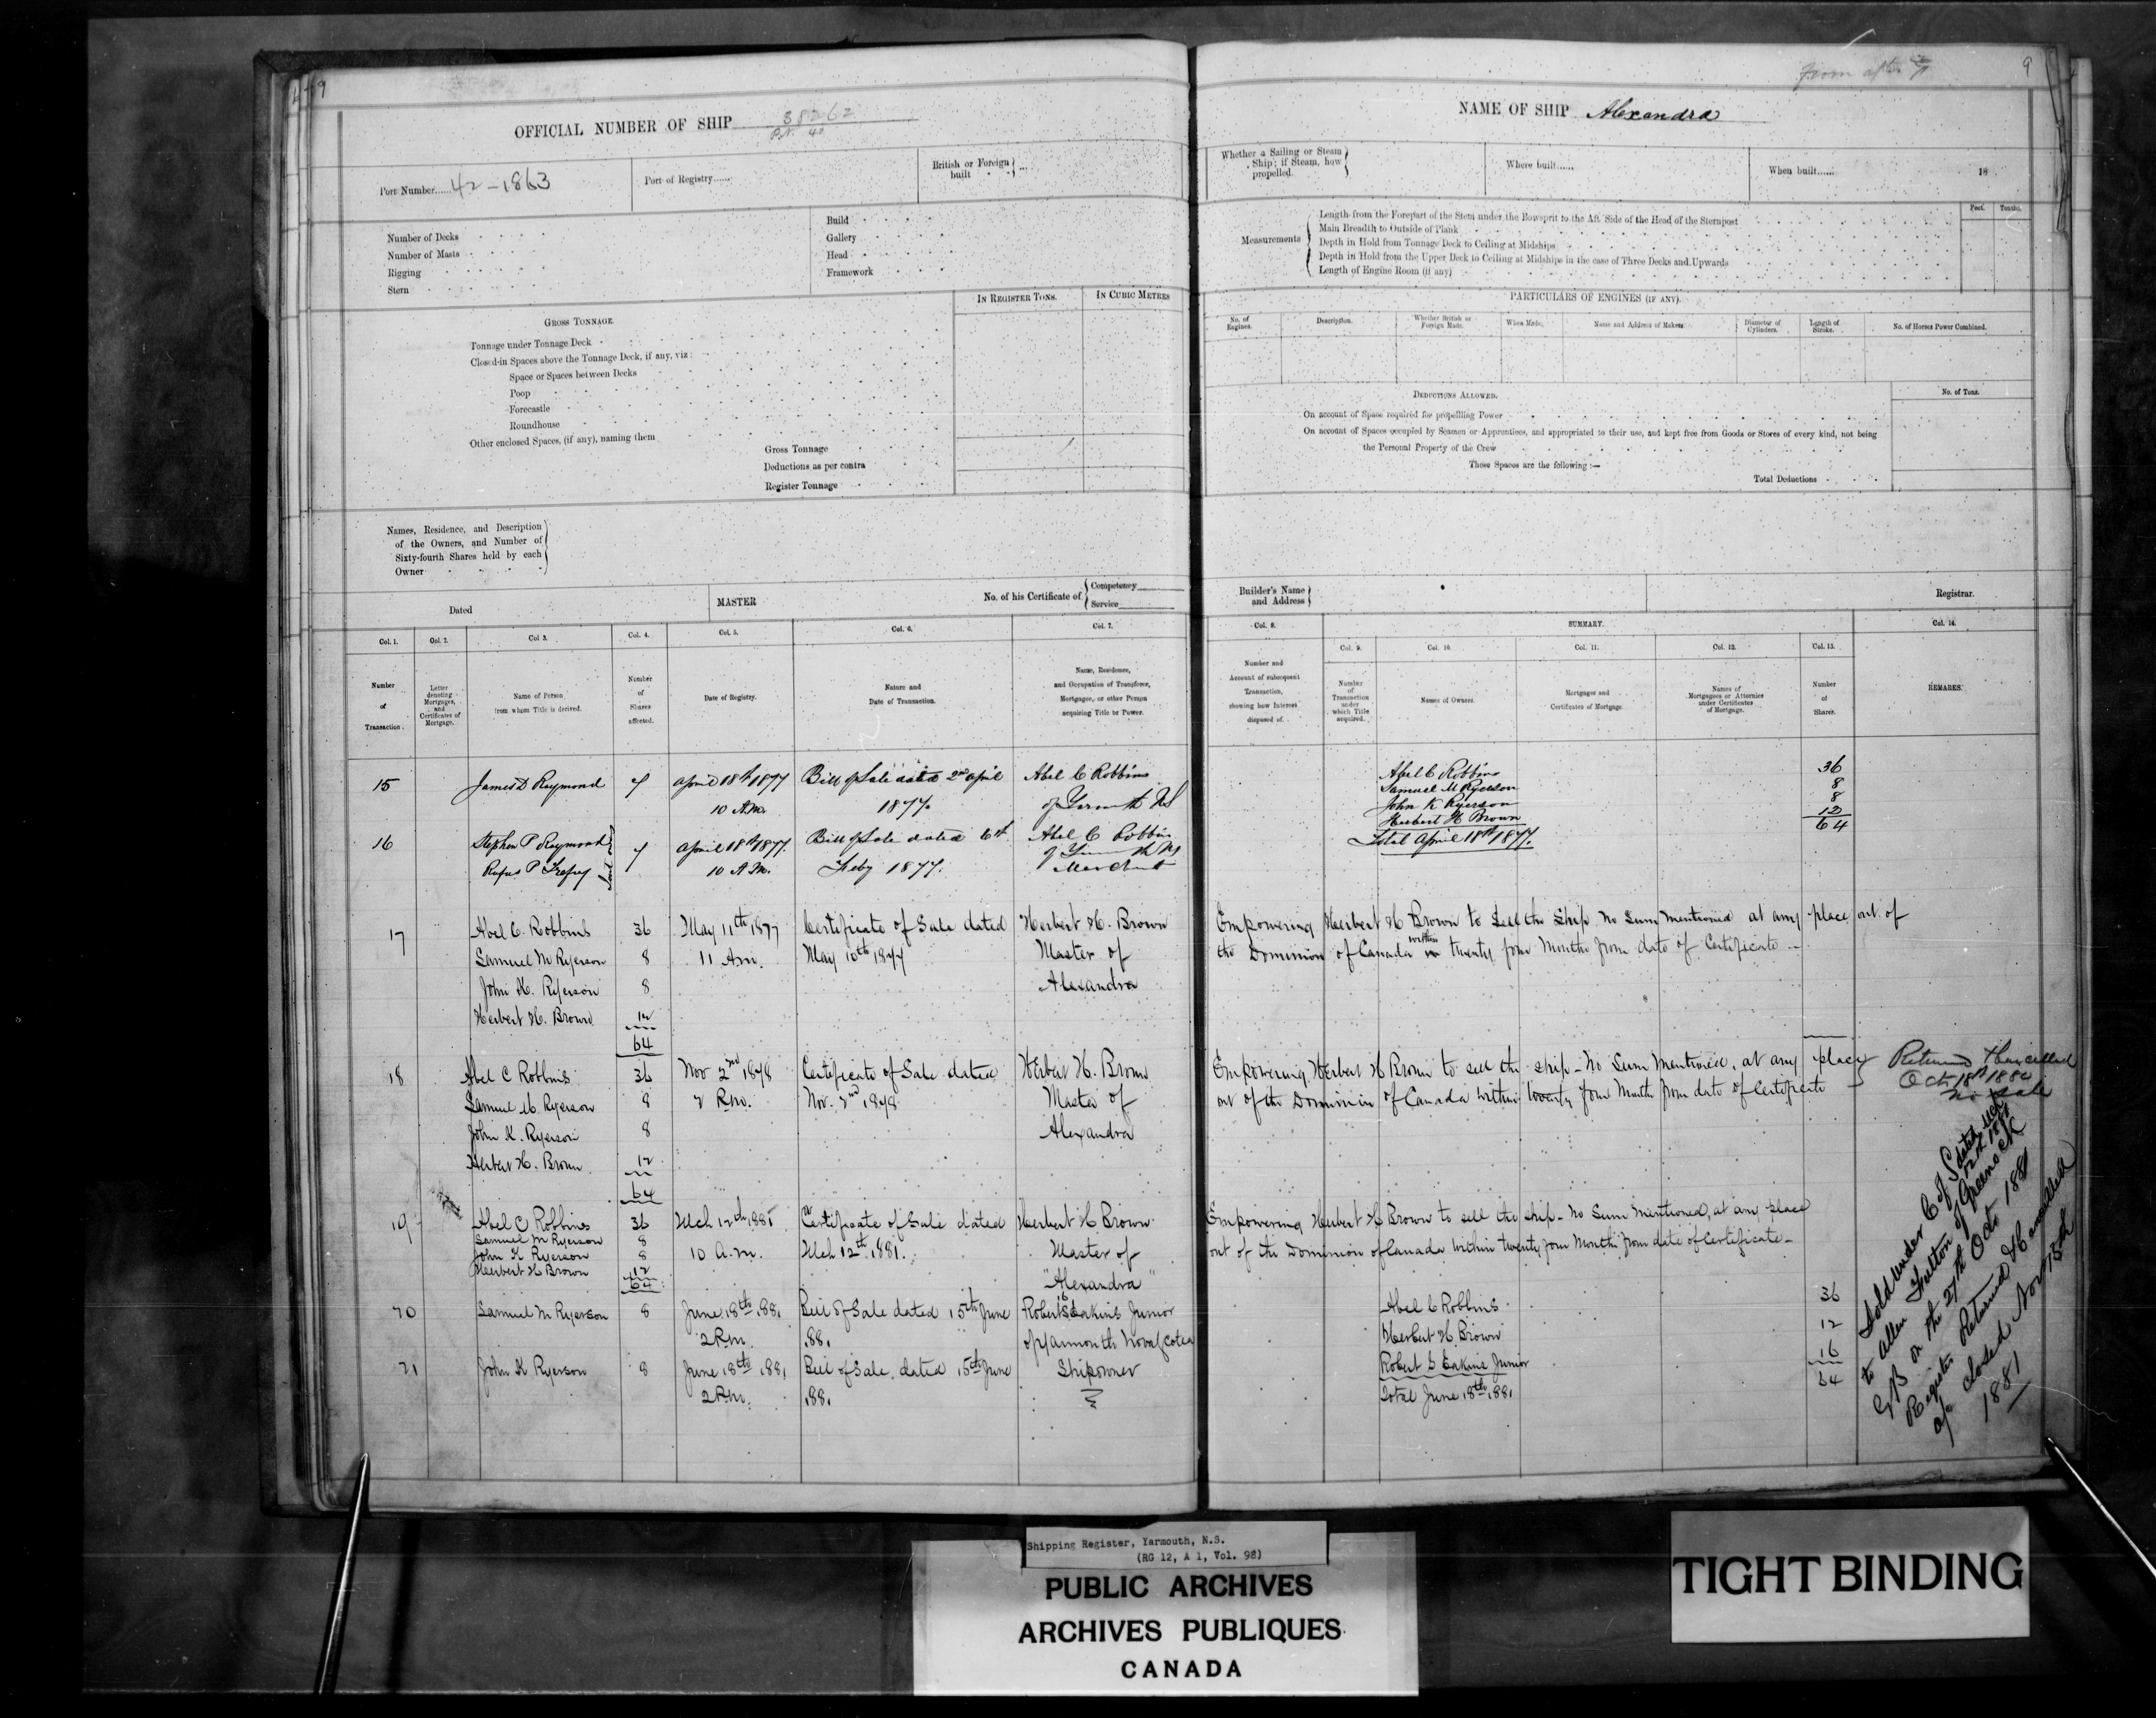 9
OFFICIAL NUMBER OF SHIP 38262
P.N. 42
Port Number......42-1863
Port of Registry......
British or Foreign built ...
Number of Decks
Number of Masts
Rigging
Stern
Build
Gallery
Head
Framework
IN REGISTER TONS.
IN CUBIC METRES
GROSS TONNAGE.
Tonnage under Tonnage Deck
Closed-in Spaces above the Tonnage Deck, if any, viz:
Space or Spaces between Decks
Poop
Forecastle
Roundhouse
Other enclosed Spaces, (if any), naming them
Gross Tonnage
Deductions as per contra
Register Tonnage
Names, Residence, and Description
of the Owners, and Number of
Sixty-fourth Shares held by each
Owner
Dated
MASTER
No. of his Certificate of
Competency
Service
Col. 1.
Col. 2.
Col 3.
Col. 4.
Col. 5.
Col. 6.
Col. 7.
Number of Transaction.
Letter denoting Mortgages, and Certificates of Mortgage.
Name of Person from whom Title is derived.
Number of Shares affected.
Date of Registry.
Nature and Date of Transaction.
Name, Residence, and Occupation of Transferee, Mortgagee, or other Person acquiring Title or Power.
15 James D Raymond 4 April 18th 1877 Bill of Sale dated 2nd April Abel C Robbins
10 A.M. 1877. of Yarmouth NS
16 Stephen P Raymond 4 April 18th 1877. Bill of Sale dated 6th Abel C Robbins
Rufus P Trefry 10 A.M. Feby 1877. of Yarmouth NS
Merchant
17 Abel C. Robbins 36 May 11th 1877 Certificate of Sale dated Herbert H. Brown
Samuel M Ryerson 8 11 Am. May 10th 1877 Master of
John K. Ryerson 8 Alexandra
Herbert H. Brown 12
64
18 Abel C Robbins 36 Nov 2nd 1878 Certificate of Sale dated Herbert H. Brown
Samuel M. Ryerson 8 2 P.m. Nov. 2nd 1878 Master of
John K. Ryerson 8 Alexandra
Herbert H. Brown 12
64
19 Abel C Robbins 36 Mch 12th 1881 Certificate of Sale dated Herbert H Brown
Samuel M Ryerson 8
John K Ryerson 8 10 a.m. Mch 12th 1881. Master of
Herbert H Brown 12
64 "Alexandra"
16
20 Samuel M Ryerson 8 June 18th 1881 Bill of Sale dated 15th June Robert S Eakins Junior
2 P.m. 1881 of Yarmouth Nova Scotia
21 John K Ryerson 8 June 18th 1881 Bill of Sale, dated 15th June Shipowner
2 P.m. 1881
From after
9
NAME OF SHIP Alexandra
Whether a Sailing or Steam Ship; if Steam, how propelled.
Where built......
When built...... 18
Measurements
Feet. Tenths.
Length from the Forepart of the Stem under the Bowsprit to the Aft Side of the Head of the Sternpost
Main Breadth to Outside of Plank
Depth in Hold from Tonnage Deck to Ceiling at Midships
Depth in Hold from the Upper Deck to Ceiling at Midships in the case of Three Decks and Upwards
Length of Engine Room (if any)
PARTICULARS OF ENGINES (IF ANY).
No. of Engines.
Description.
Whether British or Foreign Made.
When Made.
Name and Address of Makers.
Diameter of Cylinders.
Length of Stroke.
No. of Horses Power Combined.
DEDUCTIONS ALLOWED.
No. of Tons.
On account of Space required for propelling Power
On account of Spaces occupied by Seamen or Apprentices, and appropriated to their use, and kept free from Goods or Stores of every kind, not being
the Personal Property of the Crew
These Spaces are the following :—
Total Deductions
Builder's Name and Address
Registrar.
Col. 8.
SUMMARY.
Col. 14.
Col. 9.
Col. 10.
Col. 11.
Col. 12.
Col. 13.
Number and Account of subsequent Transaction, showing how Interest disposed of.
Number of Transaction under which Title acquired.
Names of Owners.
Mortgages and Certificates of Mortgage.
Names of Mortgagees or Attornies under Certificates of Mortgage.
Number of Shares.
REMARKS.
Abel C Robbins 36
Samuel M Ryerson 8
John K Ryerson 8
Herbert H Brown 12
64
Total April 18th 1877.
Empowering Herbert H Brown to Sell the Ship no Sum mentioned at any place out of
the Dominion of Canada within twenty four months from date of Certificate
Empowering Herbert H Brown to sell the ship - No Sum Mentioned, at any place
out of the Dominion of Canada within twenty four Months from date of Certificate
Returned & Cancelled
Oct 18th 1880
no Sale
Empowering Herbert H Brown to sell the ship - No Sum Mentioned, at any place
out of the Dominion of Canada within twenty four Months from date of Certificate -
Abel C Robbins 36
Herbert H Brown 12
Robert S Eakins Junior 16
64
Total June 18th 1881
Sold under C of S dated Mch
12th 1881
to Allen Fulton of Greenock
GB on the 27th Octo 1881
Register Returned & Cancelled
a/c closed Nov 15th
1881
Shipping Register, Yarmouth, N.S.
(RG 12, A 1, Vol. 98)
PUBLIC ARCHIVES
ARCHIVES PUBLIQUES
CANADA
TIGHT BINDING